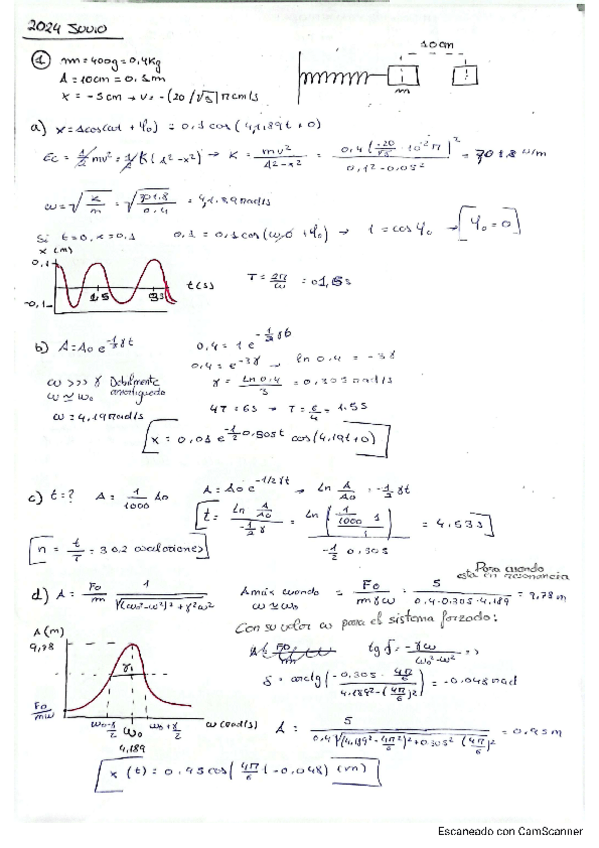 2024 JUNIO
10cm
① m = 400g = 0,4Kg
A = 10cm = 0.1m
x = -5cm → v = -(20/√3) π cm/s
m
a) x = Acos(ωt + φ₀) = 0,1 cos(4,189t + 0)
Ec = 1/2 mv² = 1/2 K(A²-x²) → K = mv² / A²-x² = 0,4 (-20/√3 · 10⁻² π)² / 0,1² - 0.05² = 7,018 N/m
ω = √(K/m) = √(7,018/0.4) = 4,189 rad/s
Si t=0, x=0.1 0,1 = 0,1cos(ω·0 + φ₀) → 1 = cos φ₀ → [φ₀ = 0]
x (m)
0,1
-0,1
1.5
3
t(s)
T = 2π/ω = 1,5s
b) A = A₀ e^-1/2 γt 0,4 = 1 e^-1/2 γ6
0,4 = e^-3γ → ln 0,4 = -3γ
ω >>> γ Debilmente amortiguado
ω ≃ ω₀
γ = ln 0.4 / 3 = 0,305 rad/s
ω = 4,19 rad/s
4T = 6s → T = 6/4 = 1.5s
x = 0,01 e^-1/2 0,305t cos(4,19t+0)
c) t = ? A = 1/1000 A₀ A = A₀ e^-1/2 γt → Ln A/A₀ = -1/2 γt
t = Ln A/A₀ / -1/2 γ = Ln (1/1000 1) / 1 / -1/2 0,305 = 4,53s
n = t/T = 30.2 oscilaciones
d) A = F₀/m 1/√((ω₀²-ω²)²+γ²ω²) Amáx cuando ω≃ω₀ = F₀/mγω = 5 / 0,4·0.305·4.189 = 9,78m
Para cuando está en resonancia
Con su valor ω para el sistema forzado:
A (m)
9,78
γ
F₀/mω
ω₀-γ/2
ω₀
ω₀+γ/2
4,189
ω (rad/s)
tg δ = -γω / ω₀²-ω² =>
δ = arctg (-0,305 · 4π/6 / 4.189² - (4π/6)²) = -0.048 rad
A = 5 / 0,4 √((4,189² - 4π/6²)² + 0.305² (4π/6)²) = 0.95m
x (t) = 0.95cos(4π/6 t - 0,048) (m)
Escaneado con CamScanner